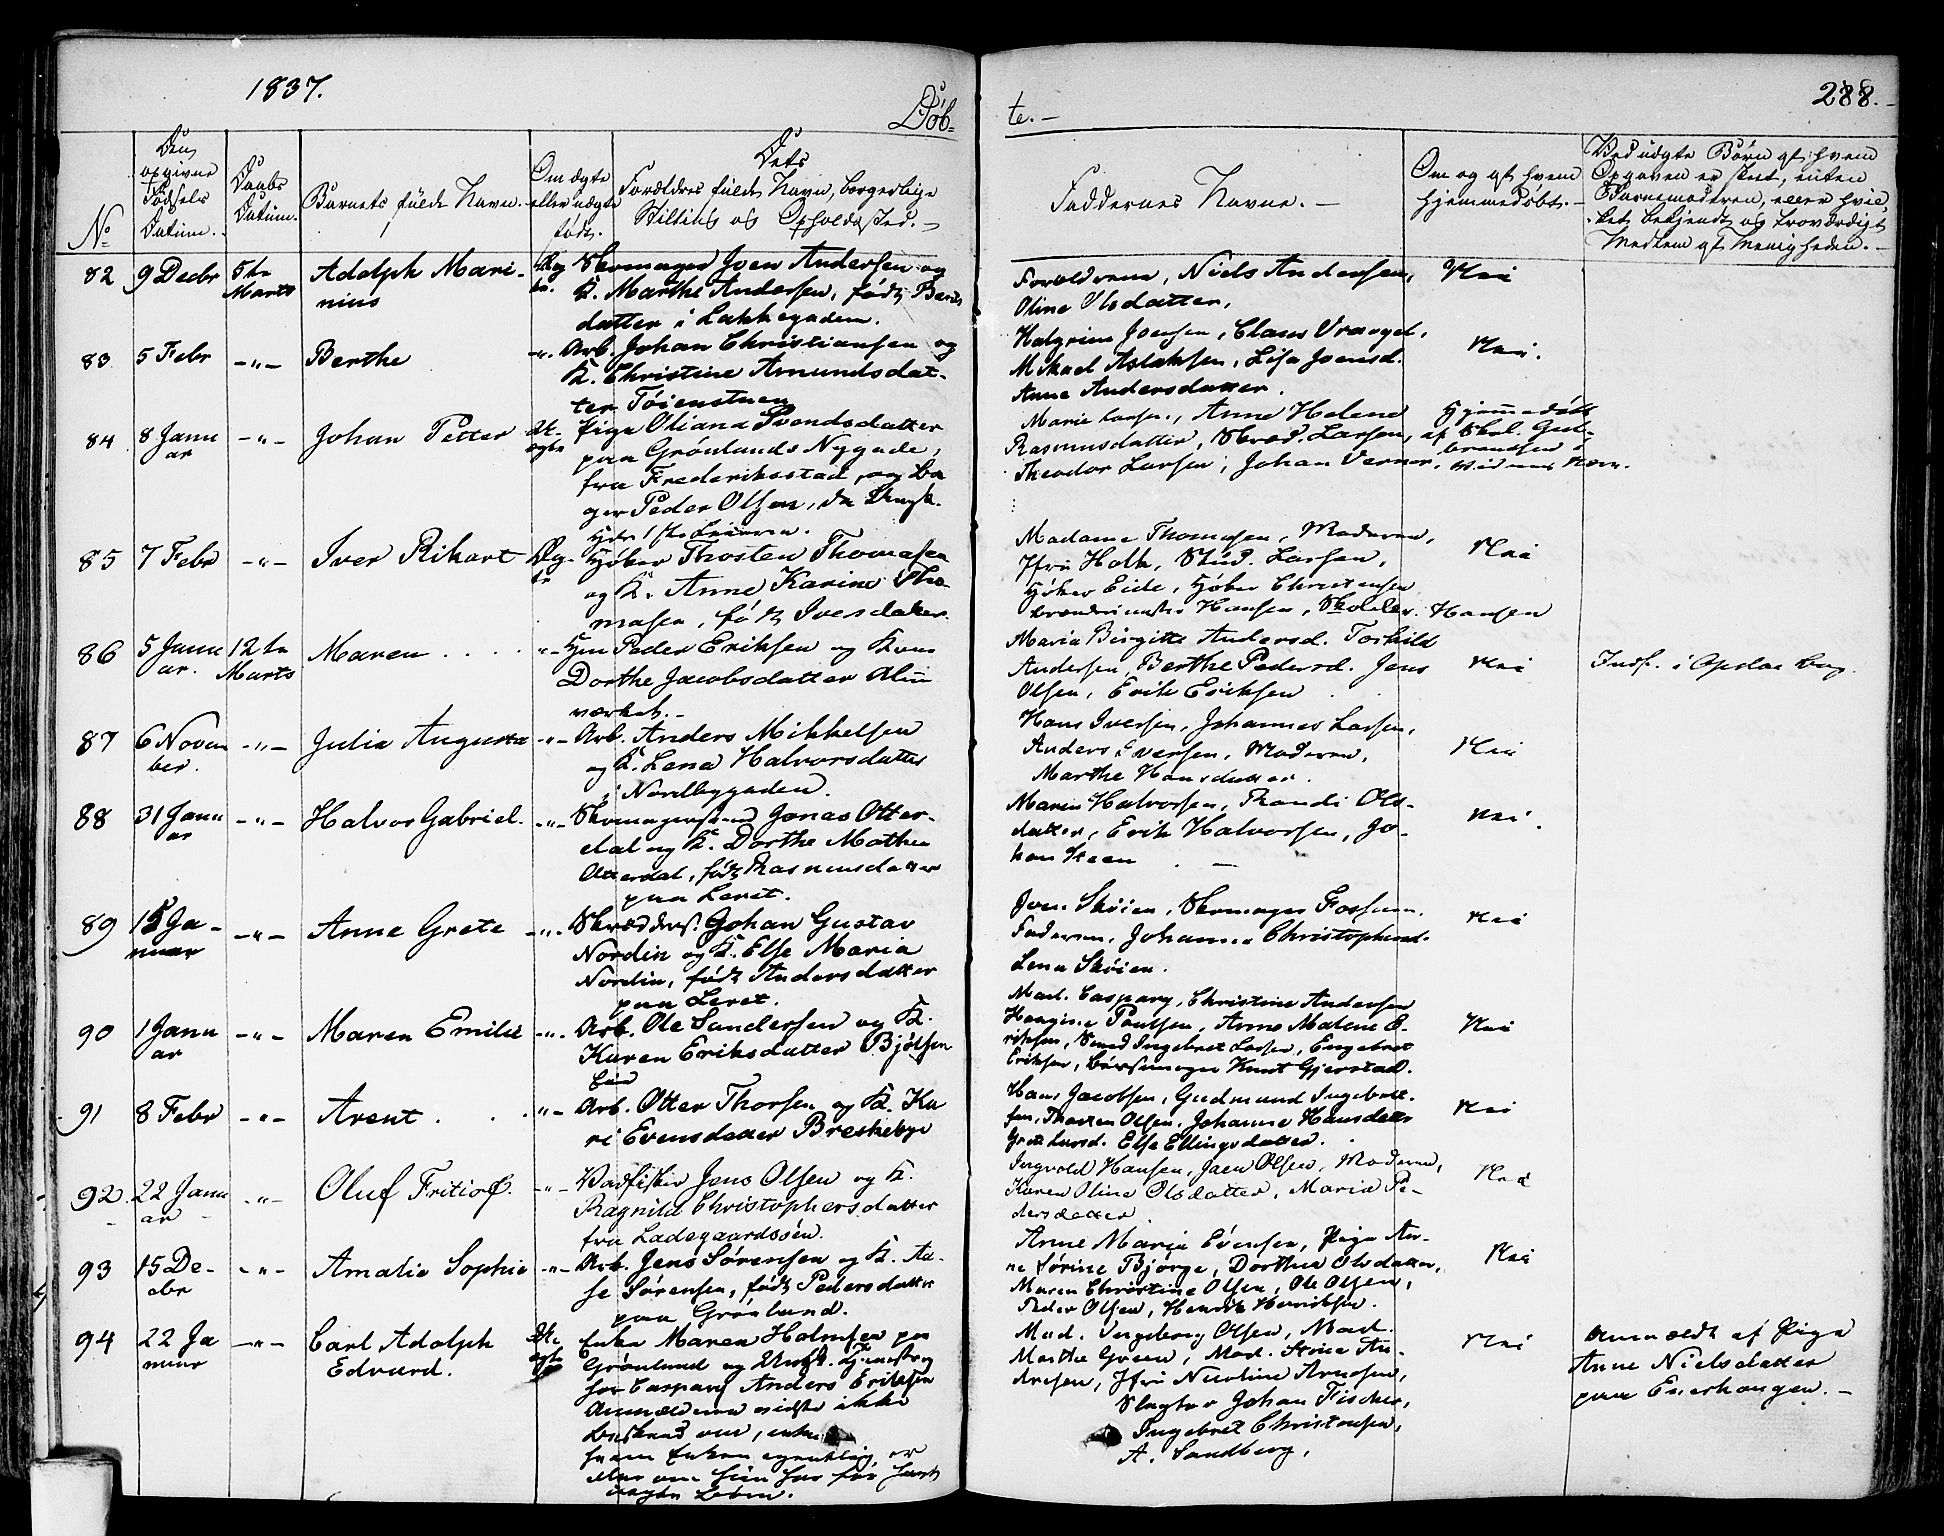 1837.
Døb-
te. -
288.
No
Den opgivne Fødsels Datum.
Daabs Datum.
Barnets fulde Navn.
Om ægte eller uægte født.
Dets Forældres fulde Navn, borgerlige Stilling og Opholdssted. -
Faddernes Navne. -
Om og af hvem hjemmedøbt. -
Ved uægte Børn af hvem Opgaven er skeet, enten Barnemoderen, eller hvilket bekjendt og troværdigt Medlem af Menigheden. -
82 9 Decbr 5te Marts Adolph Marinius Æg- te.
Skomager Joen Andersen og
K. Marthe Andersen, født
datter i Lakkegaden.
Forældrene, Niels Andersen,
Oline Olsdatter,
Halgrim Joensen, Claus Vrangel,
Nei
83 5 Febr -"- Berthe -"-
Arb. Johan Christiansen og
K. Christine Amundsdat-
ter Tøienstuen
Mikael Aslaksen, Lisa Joensd.
Anne Andersdatter.
Nei.
84 8 Janu ar -"- Johan Petter Uægte
Pige Oliana Svendsdatter
paa Grønlands Nygade,
fra Frederiksstad, og Ba
ger Peder Olsen,
Marie Larsen, Anne Helene
Rasmusdatter, Larsen,
Theodor Larsen, Johan Verner.
Hjemmedøbt
af Skol. Gul-
brandsen
85 7 Febr -"- Iver Rikart Æg- te
Høker Thosten Thomasen
og K. Anne Karine Tho-
masen, født Iversdatter.
Madame Thomasen, Moderen,
Jfr: Holk, Stud. Larsen,
Høker Eide, Høker Christensen
Hansen, Hansen
Nei
86 5 Janu ar. 12te Marts Maren . . . . -"-
Peder Eriksen og Kone
Dorthe Jacobsdatter Alun
værket. -
Maria Birgitte Andersd. Torkild
Andersen, Berthe Pedersd. Jens
Olsen, Erik Eriksen
Nei
Indf. i Opsloe
87 6 Novem ber. -"- Julia Augusta -"-
Arb. Anders Mikkelsen
og K. Lena Halvorsdatter
i Nordbygaden.
Hans Iversen, Johannes Larsen,
Anders Iversen, Moderen,
Marthe Hansdatter.
Nei
88 31 Janu ar -"- Halvor Gabriel. -"-
Skomagersvend Jonas Otter-
dal og K. Dorthe Mathea
Otterdal, født Rasmusdatter
paa Leret.
Maren Halvorsen, Randi Ols-
datter, Erik Halvorsen, Jo-
han Steen -
Nei.
89 15 Ja- nuar -"- Anne Grete -"-
Skrædders. Johan Gustav
Nordin og K. Else Maria
Nordin, født Andersdatter
paa Leret.
Joen Skøien, Skomager Fossum,
Faderen, Johanne Christophersd.
Lena Skøien.
Nei
90 1 Janu ar -"- Maren Emilie -"-
Arb. Ole Sandersen og K.
Karen Eriksdatter Bjølsen
Mad. Caspary, Christine Andersen
Poulsen, Anne Malene E-
riksen, Smed Ingebret Larsen, Engebret
Eriksen, Børsemager Knut Gjerstad.
Nei
91 8 Febr -"- Arent . . . -"-
Arb. Otter Thorsen og K. Ka
ri Evensdatter Breskebye
Hans Jacobsen, Gudmund Ingebret-
sen, Thosten Olsen, Johanne Hansdatter
Larsd. Else Ellingsdatter.
Nei
92. 22 Janu ar -"- Oluf Fritiof. -"-
Jens Olsen og K.
Ragnild Christophersdatter
fra Ladegaardsøen.
Ingvold Hansen, Joen Olsen, Moderen,
Karen Oline Olsdatter, Maria Pe-
dersdatter
Nei
93 15 De- cbr -"- Amalie Sophie -"-
Arb. Jens Sørensen og K. Aa-
se Sørensen, født Pedersdatter
paa Grønland.
Anne Maria Evensen, Pige An-
ne Sørine Bjørge, Dorthea Olsdatter,
Maren Christine Olsen, Ole Olsen,
Peder Olsen, Henrik Henriksen.
Nei
94 22 Ja nuar -"- Carl Adolph Edvard. Uægte
Enke Maren Holmsen paa
Grønland og
for Caspary Anders Eriksen
Anmelderen vidste ikke
Beskeed om,
hvem Enken egentlig er
eller om hun har før havt
uægte Børn.
Mad. Ingeborg Olsen, Mad.
Marthe Green, Mad. Stine An-
dresen, Jfr: Nicoline Arnesen,
Slagter Johan Fischer,
Ingebret Christensen,
A. Sandberg,
Nei
Anmeldt af Pige
Anne Nielsdatter
paa Enerhougen. -